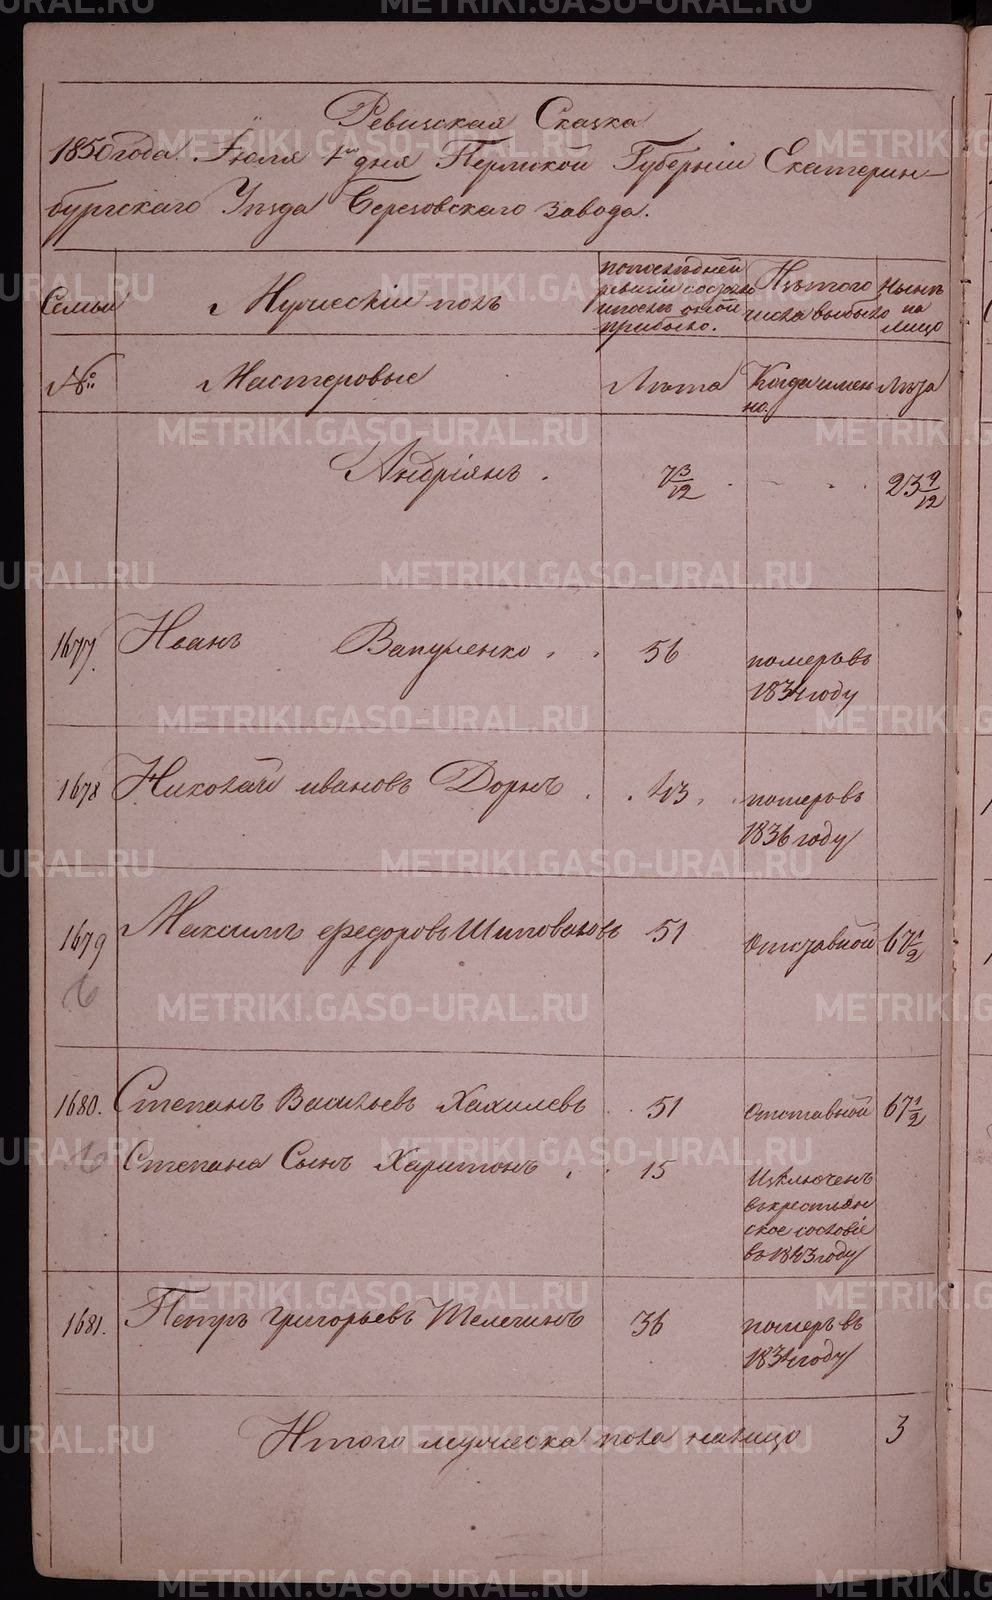 Ревизская Сказка
1850 года. Іюля 1го дня Пермской Губерніи Екатерин-
бургскаго Уезда Березовскаго завода.
Семьи
Мужескій полъ
По последней ревизіи состояло и после оной прибыло.
Изъ того числа выбыло
Ныне на лицо
№
Мастеровые
Лета
Когда имен-
но.
Лета
Андріянъ . 7 3/12 . . . 23 9/12
1677. Иванъ Вапуленко . . 56 померъ въ
1834 году
1678 Николай ивановъ Дорнъ . . 43 . померъ въ
1836 году
1679 Максимъ Федоровъ Шиповаловъ 51 отставной 67 1/2
1680. Степанъ Васильевъ Хахилевъ . 51 отставной 67 1/2
Степана Сынъ Харитонъ . . 15 Изключенъ
въ крестьян
ское сословіе
въ 1843 году
1681. Петръ григорьевъ Телегинъ 36 померъ въ
1834 году
Итого мужеска пола налицо 3
METRIKI.GASO-URAL.RU